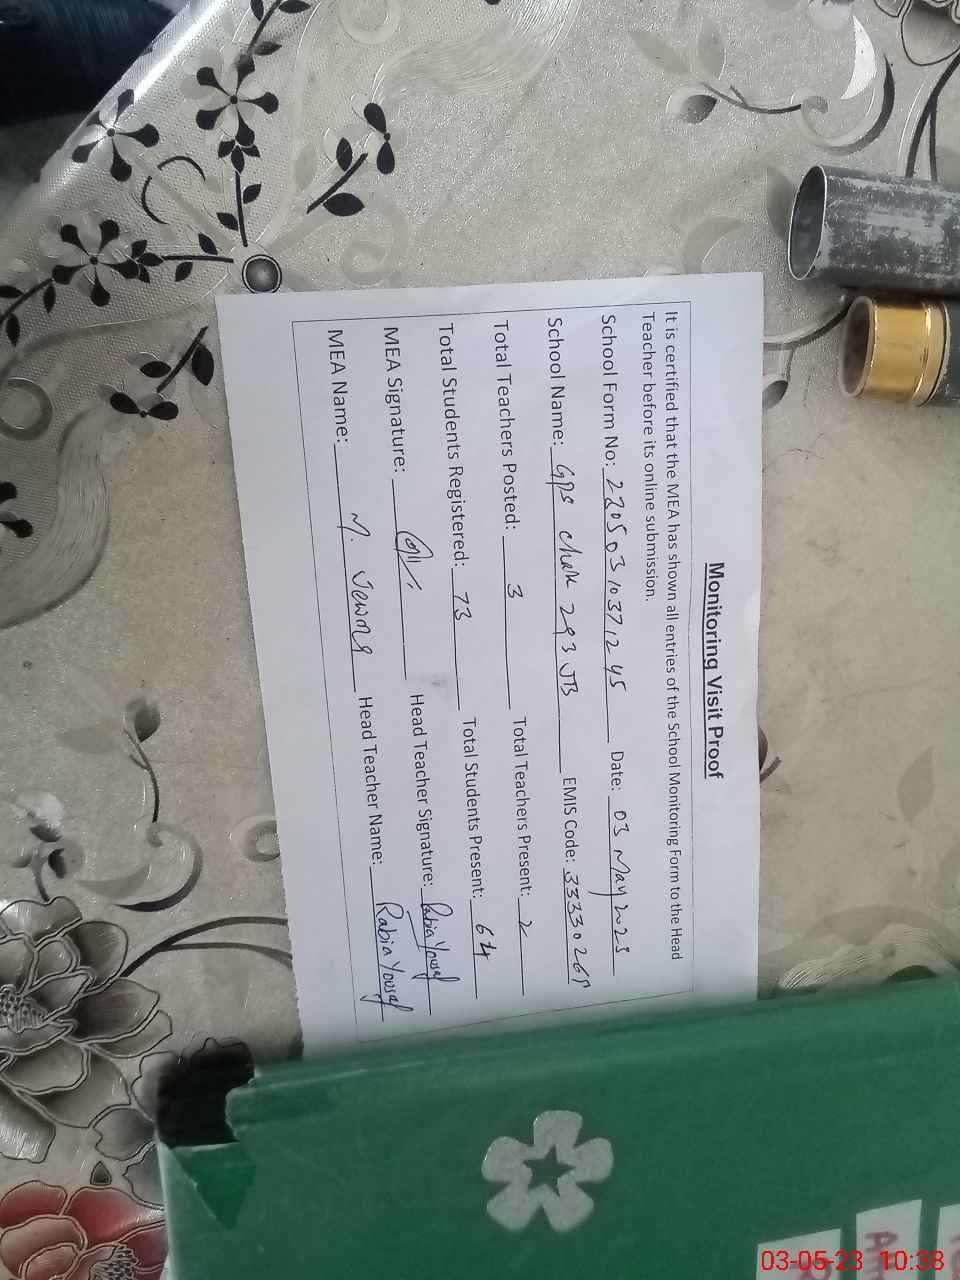 Monitoring Visit Proof
It is certified that the MEA has shown all entries of the School Monitoring Form to the Head
Teacher before its online submission.
School Form No: 22050310371245 Date: 03 May 2023
School Name: GPS chak 293 JB EMIS Code:
Total Teachers Posted: 3 Total Teachers Present: 2
Total Students Registered: 73 Total Students Present: 64
MEA Signature: Head Teacher Signature: Rabia Yousaf
MEA Name: M. Head Teacher Name: Rabia Yousaf
03-05-23 10:38